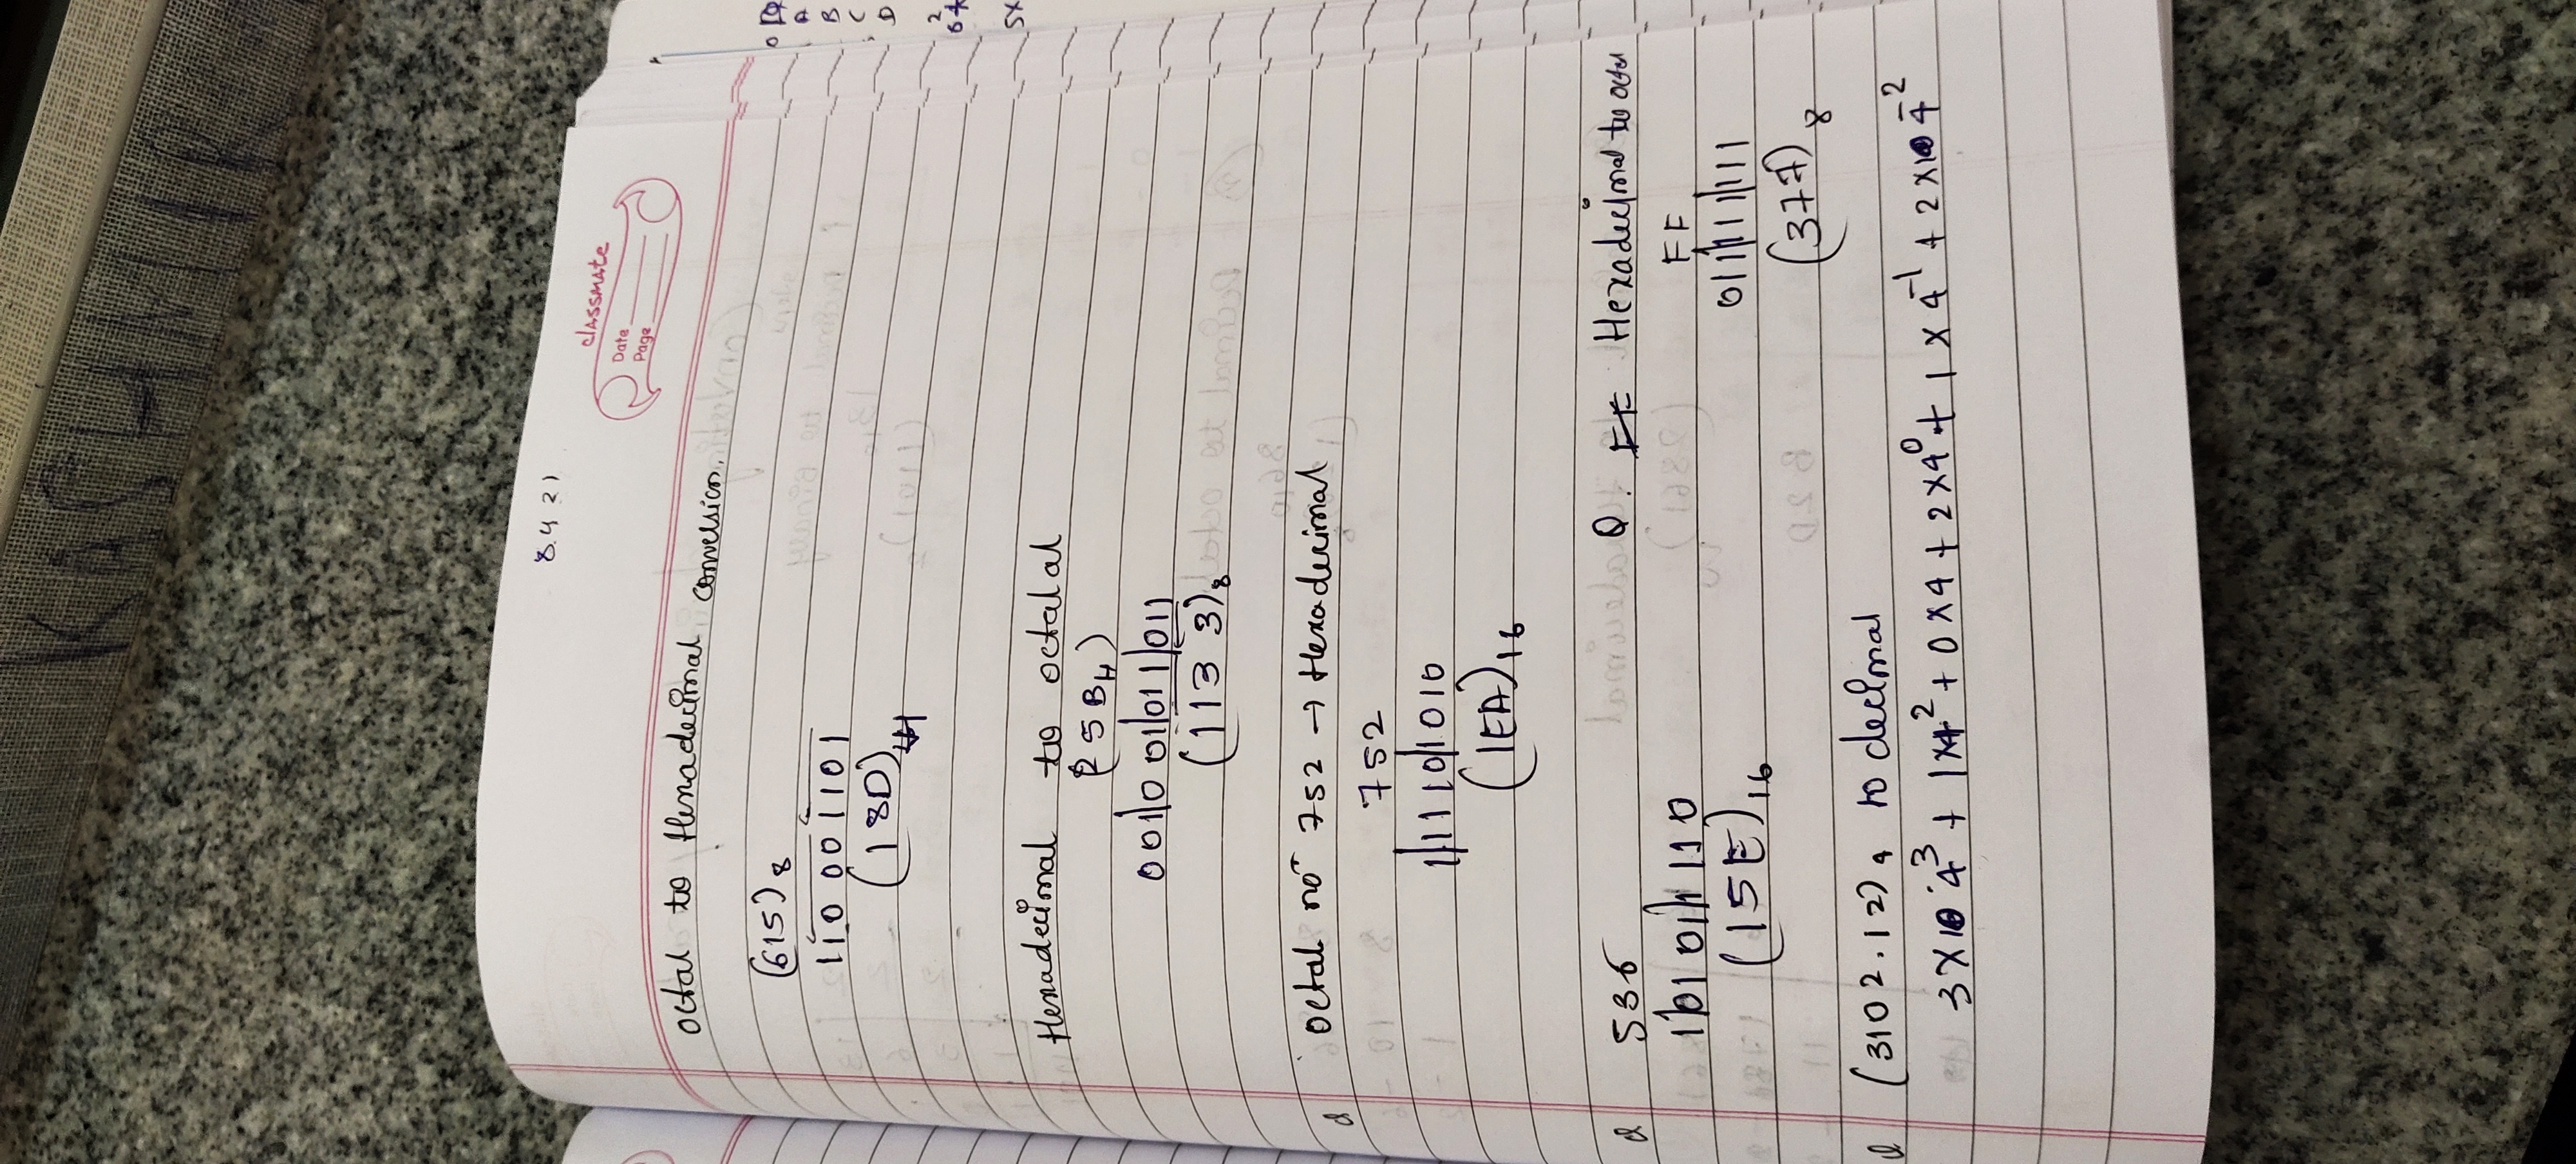 KASHMIR
8421
classmate
Date
Page
octal to Hexadecimal conversion.
(615)8
110 001101
(18D)H
Hexadecimal to octalal
(25BH)
001|0 01|011|011
(1133)8
Q octal no 752 → Hexadecimal
752
1|1110|1010
(1EA)16
Q 536
1|0101|1110
(15E)16
Q. Hexadecimal to octal
FF
011|111|111
(377)8
Q (3102.12)4 to decimal
3×4³ + 1×4² + 0×4 + 2×4⁰ + 1×4⁻¹ + 2×4⁻²
A
B
C
D
2
5x